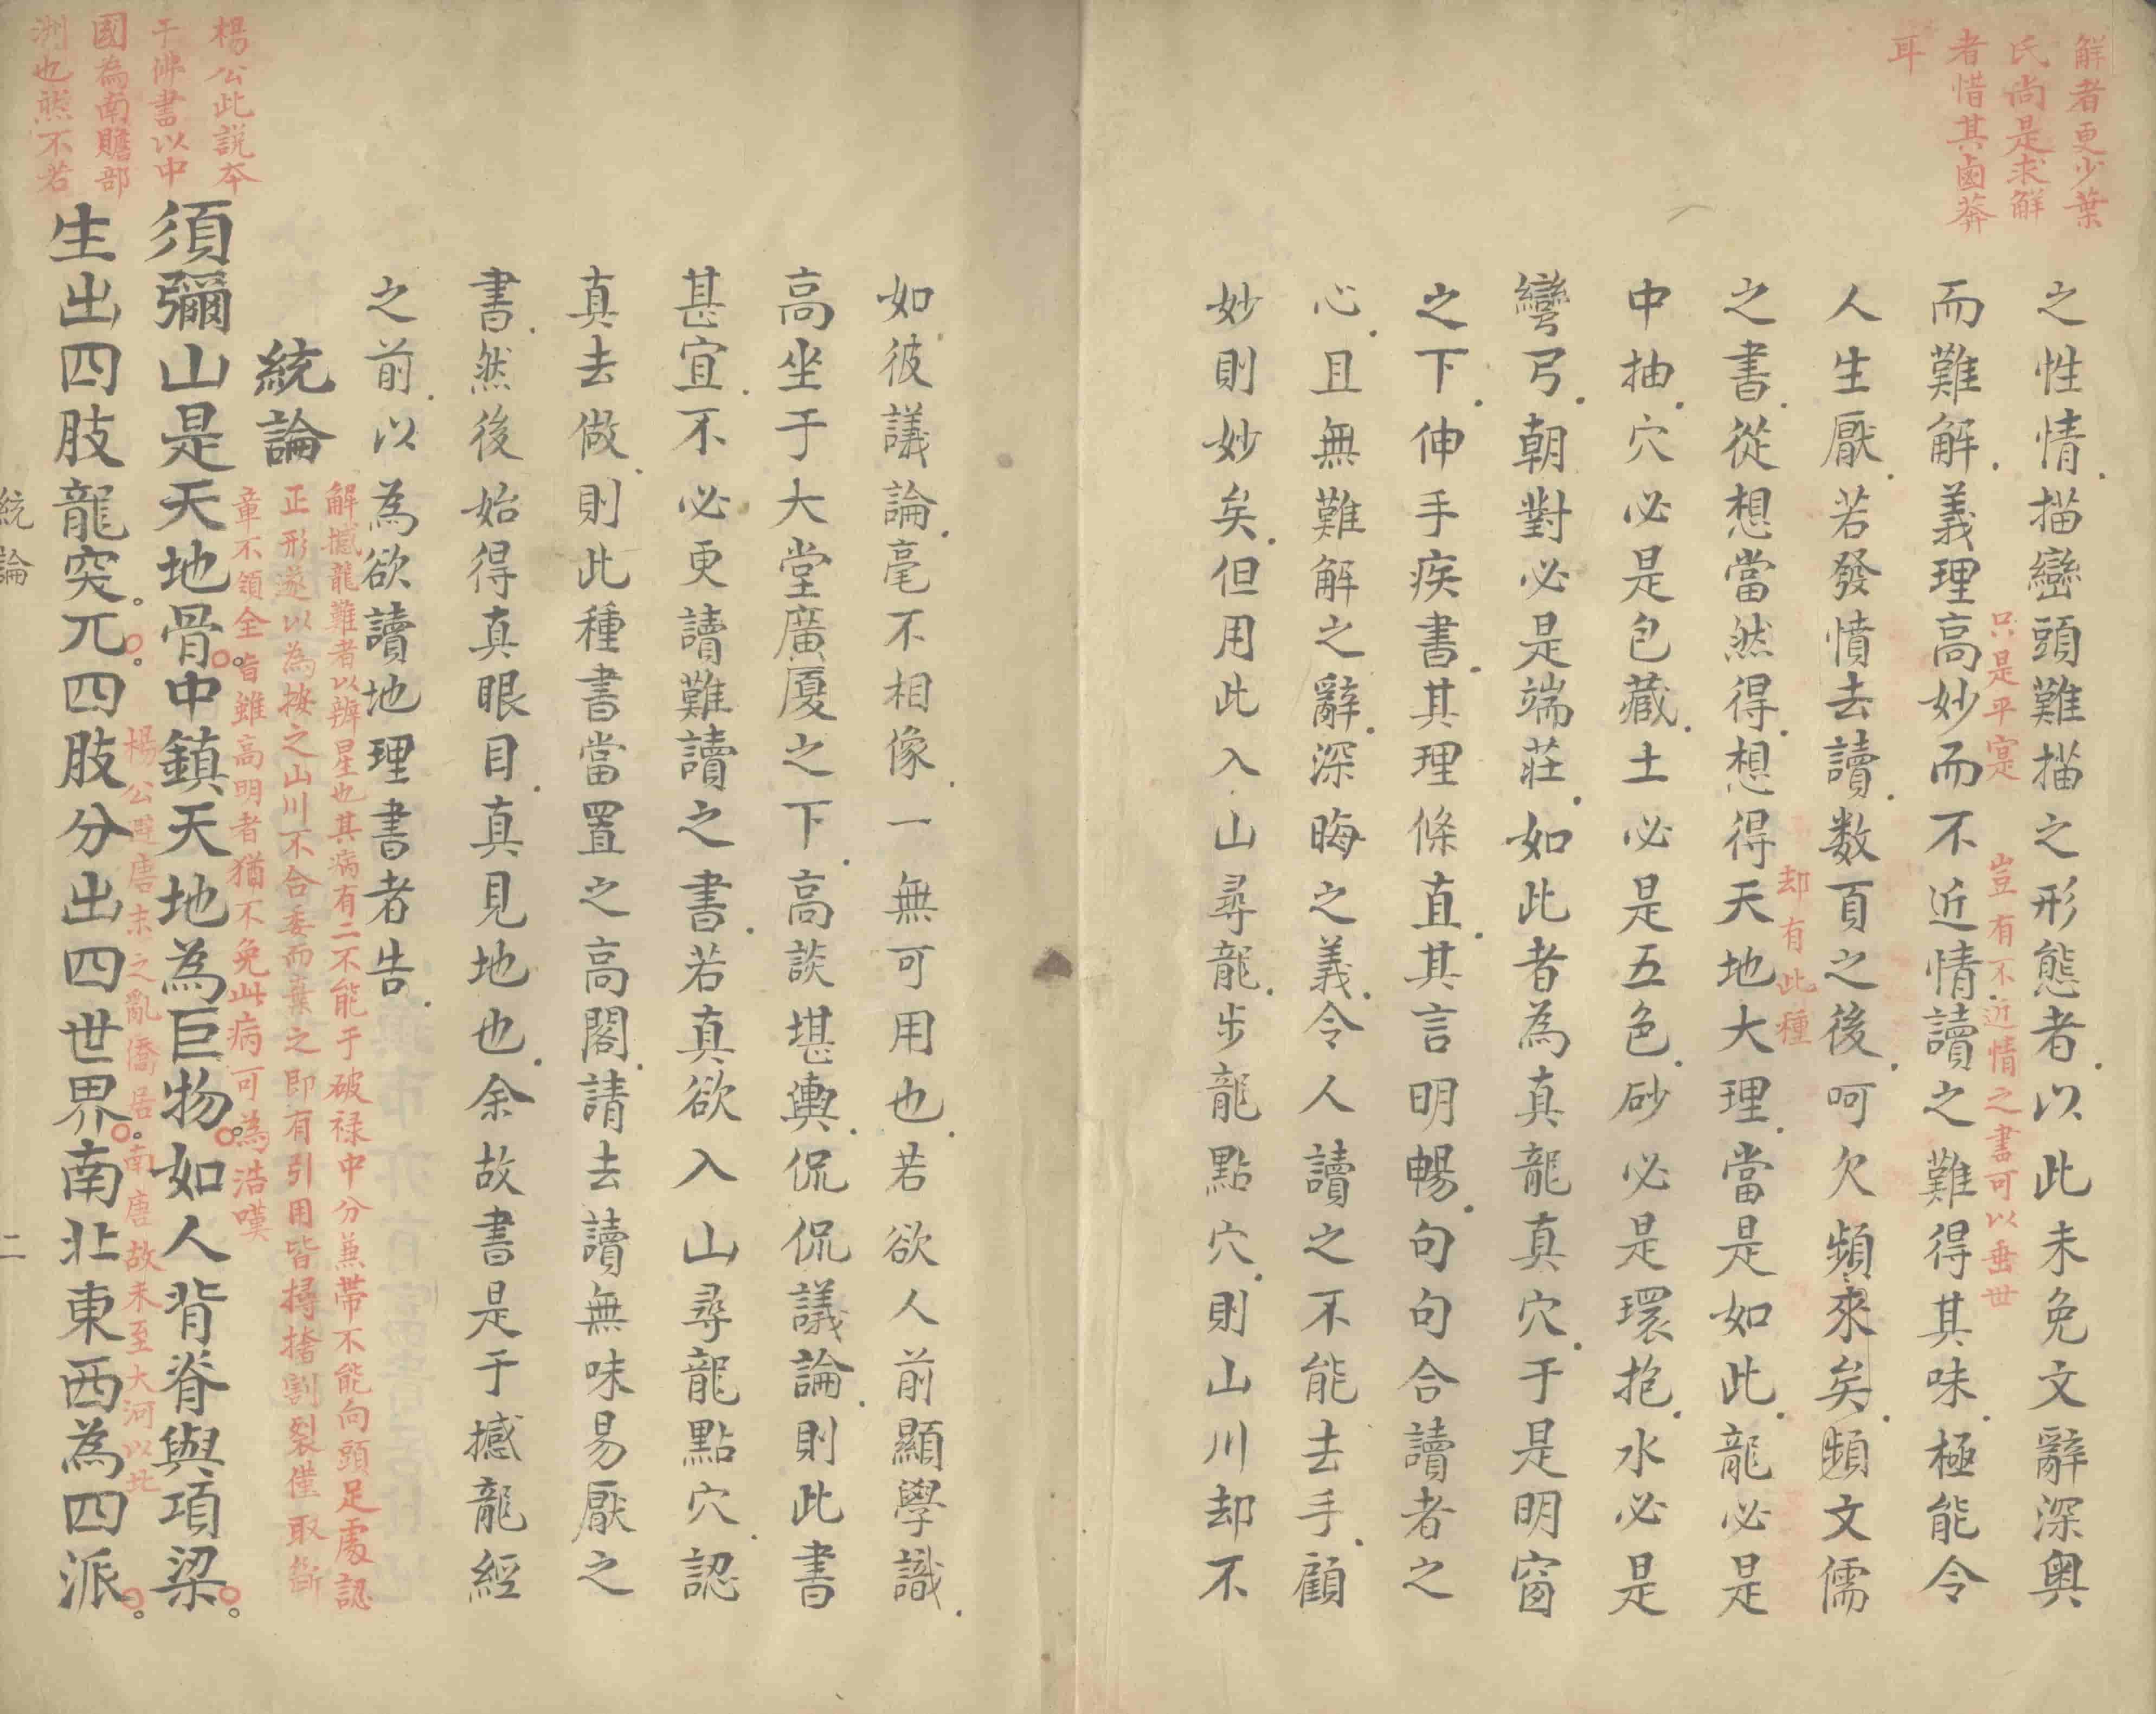 解者更少葉
氏尚是求解
者惜其鹵莽
耳
之性情描巒頭難描之形態者以此未免文辭深奧
只是平寔
豈有不近情之書可以垂世
而難解義理高妙而不近情讀之難得其味極能令
人生厭若發憤去讀数頁之後呵欠頻來矣頻文儒
却有此種
之書從想當然得想得天地大理當是如此龍必是
中抽穴必是包藏土必是五色砂必是環抱水必是
彎弓朝對必是端莊如此者為真龍真穴于是明窗
之下伸手疾書其理條直其言明暢句句合讀者之
心且無難解之辭深晦之義令人讀之不能去手顧
妙則妙矣但用此入山尋龍步龍點穴則山川却不
如彼議論毫不相像一無可用也若欲人前顯學識
高坐于大堂廣廈之下高談堪輿侃侃議論則此書
甚宜不必更讀難讀之書若真欲入山尋龍點穴認
真去做則此種書當置之高閣請去讀無味易厭之
書然後始得真眼目真見地也余故書是于撼龍經
之前以為欲讀地理書者告
統論
解撼龍難者以辨星也其病有二不能于破祿中分兼帶不能向頭足處認
正形遂以為按之山川不合委而棄之即有引用皆撏撦割裂僅取斷
章不領全旨雖高明者猶不免此病可為浩嘆
楊公此説本
于佛書以中
國為南贍部
洲也然不若
須彌山是天地骨中鎮天地為巨物如人背脊與項梁
楊公避唐末之亂僑居南唐故未至大河以北
生出四肢龍突兀四肢分出四世界南北東西為四派
統論
二